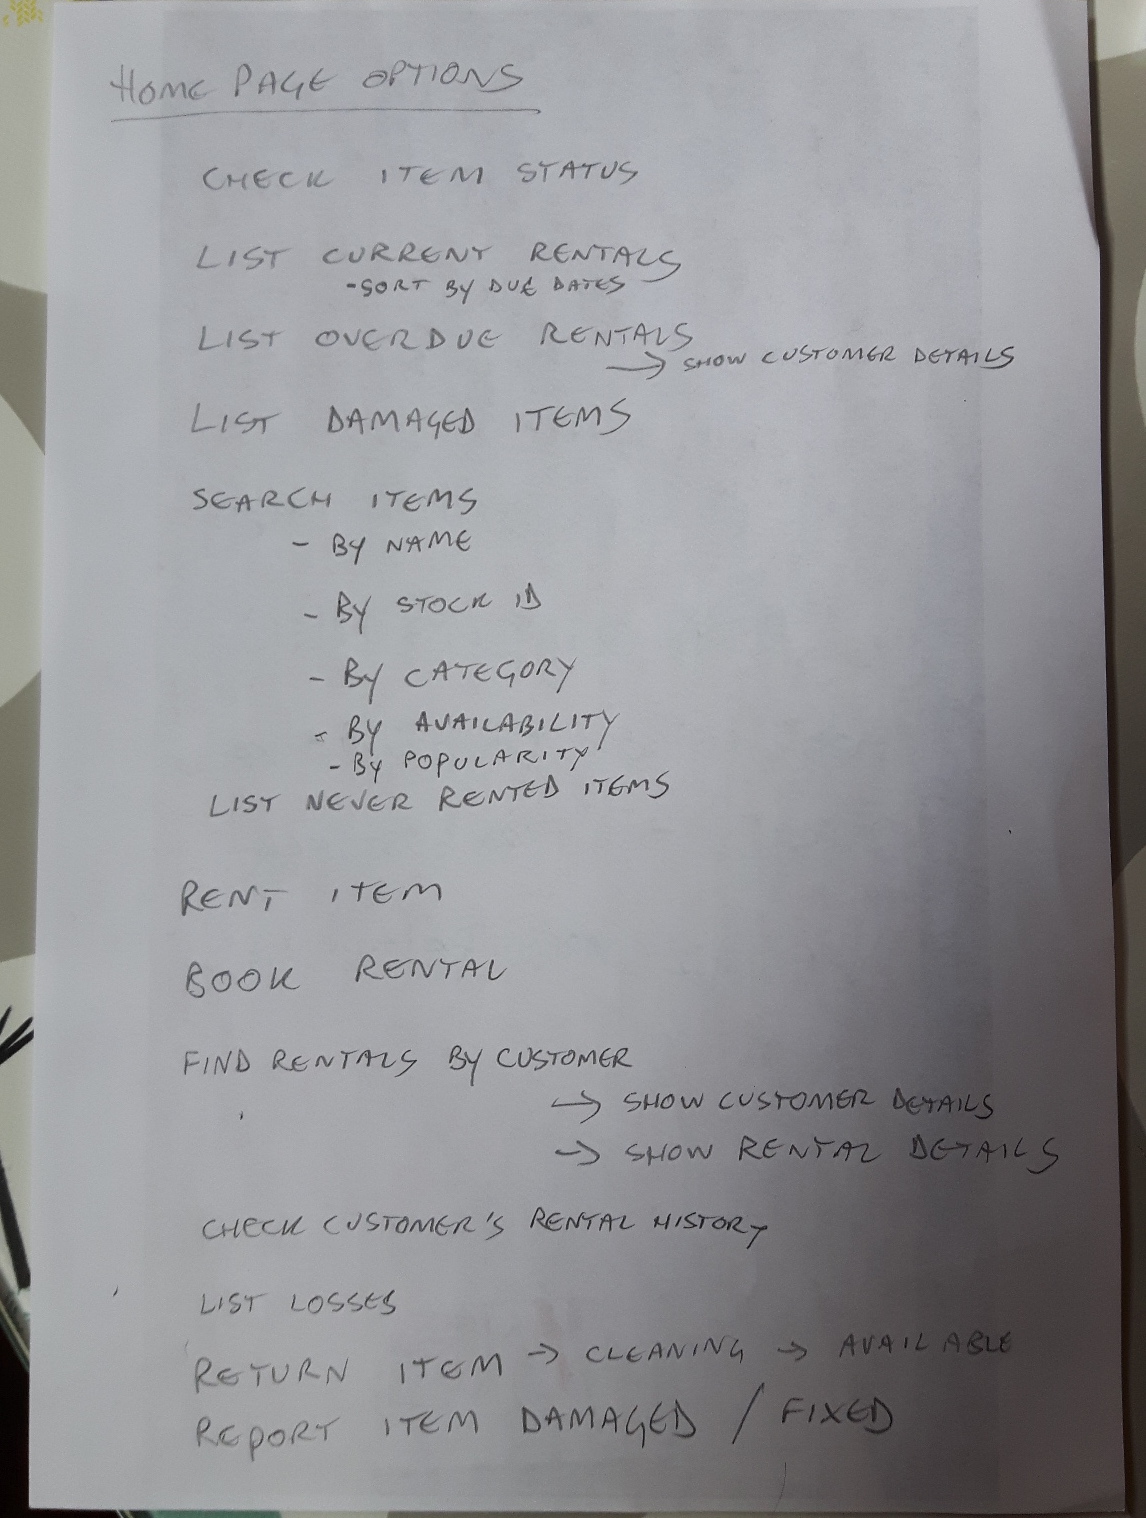 HOME PAGE OPTIONS
CHECK ITEM STATUS
LIST CURRENT RENTALS
-SORT BY DUE DATES
LIST OVERDUE RENTALS
→ SHOW CUSTOMER DETAILS
LIST DAMAGED ITEMS
SEARCH ITEMS
- BY NAME
- BY STOCK ID
- BY CATEGORY
- BY AVAILABILITY
- BY POPULARITY
LIST NEVER RENTED ITEMS
RENT ITEM
BOOK RENTAL
FIND RENTALS BY CUSTOMER
→ SHOW CUSTOMER DETAILS
→ SHOW RENTAL DETAILS
CHECK CUSTOMER'S RENTAL HISTORY
LIST LOSSES
RETURN ITEM → CLEANING → AVAILABLE
REPORT ITEM DAMAGED / FIXED